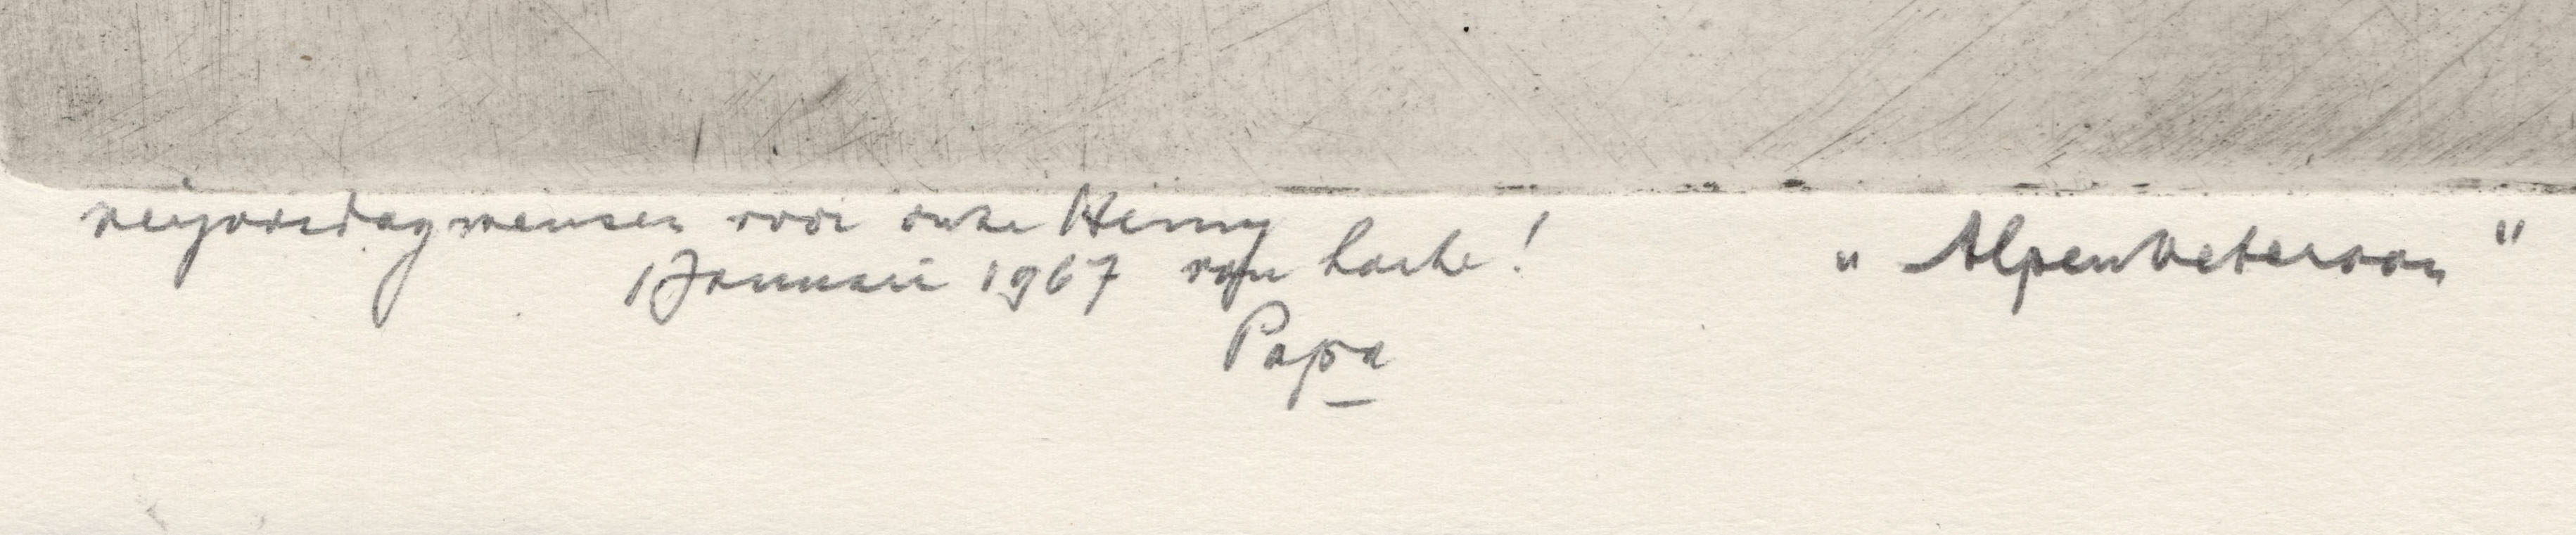 verjaardagwensen voor onze Henny
1 Januari 1967 van harte!
Papa
„ Alpenveteraan "